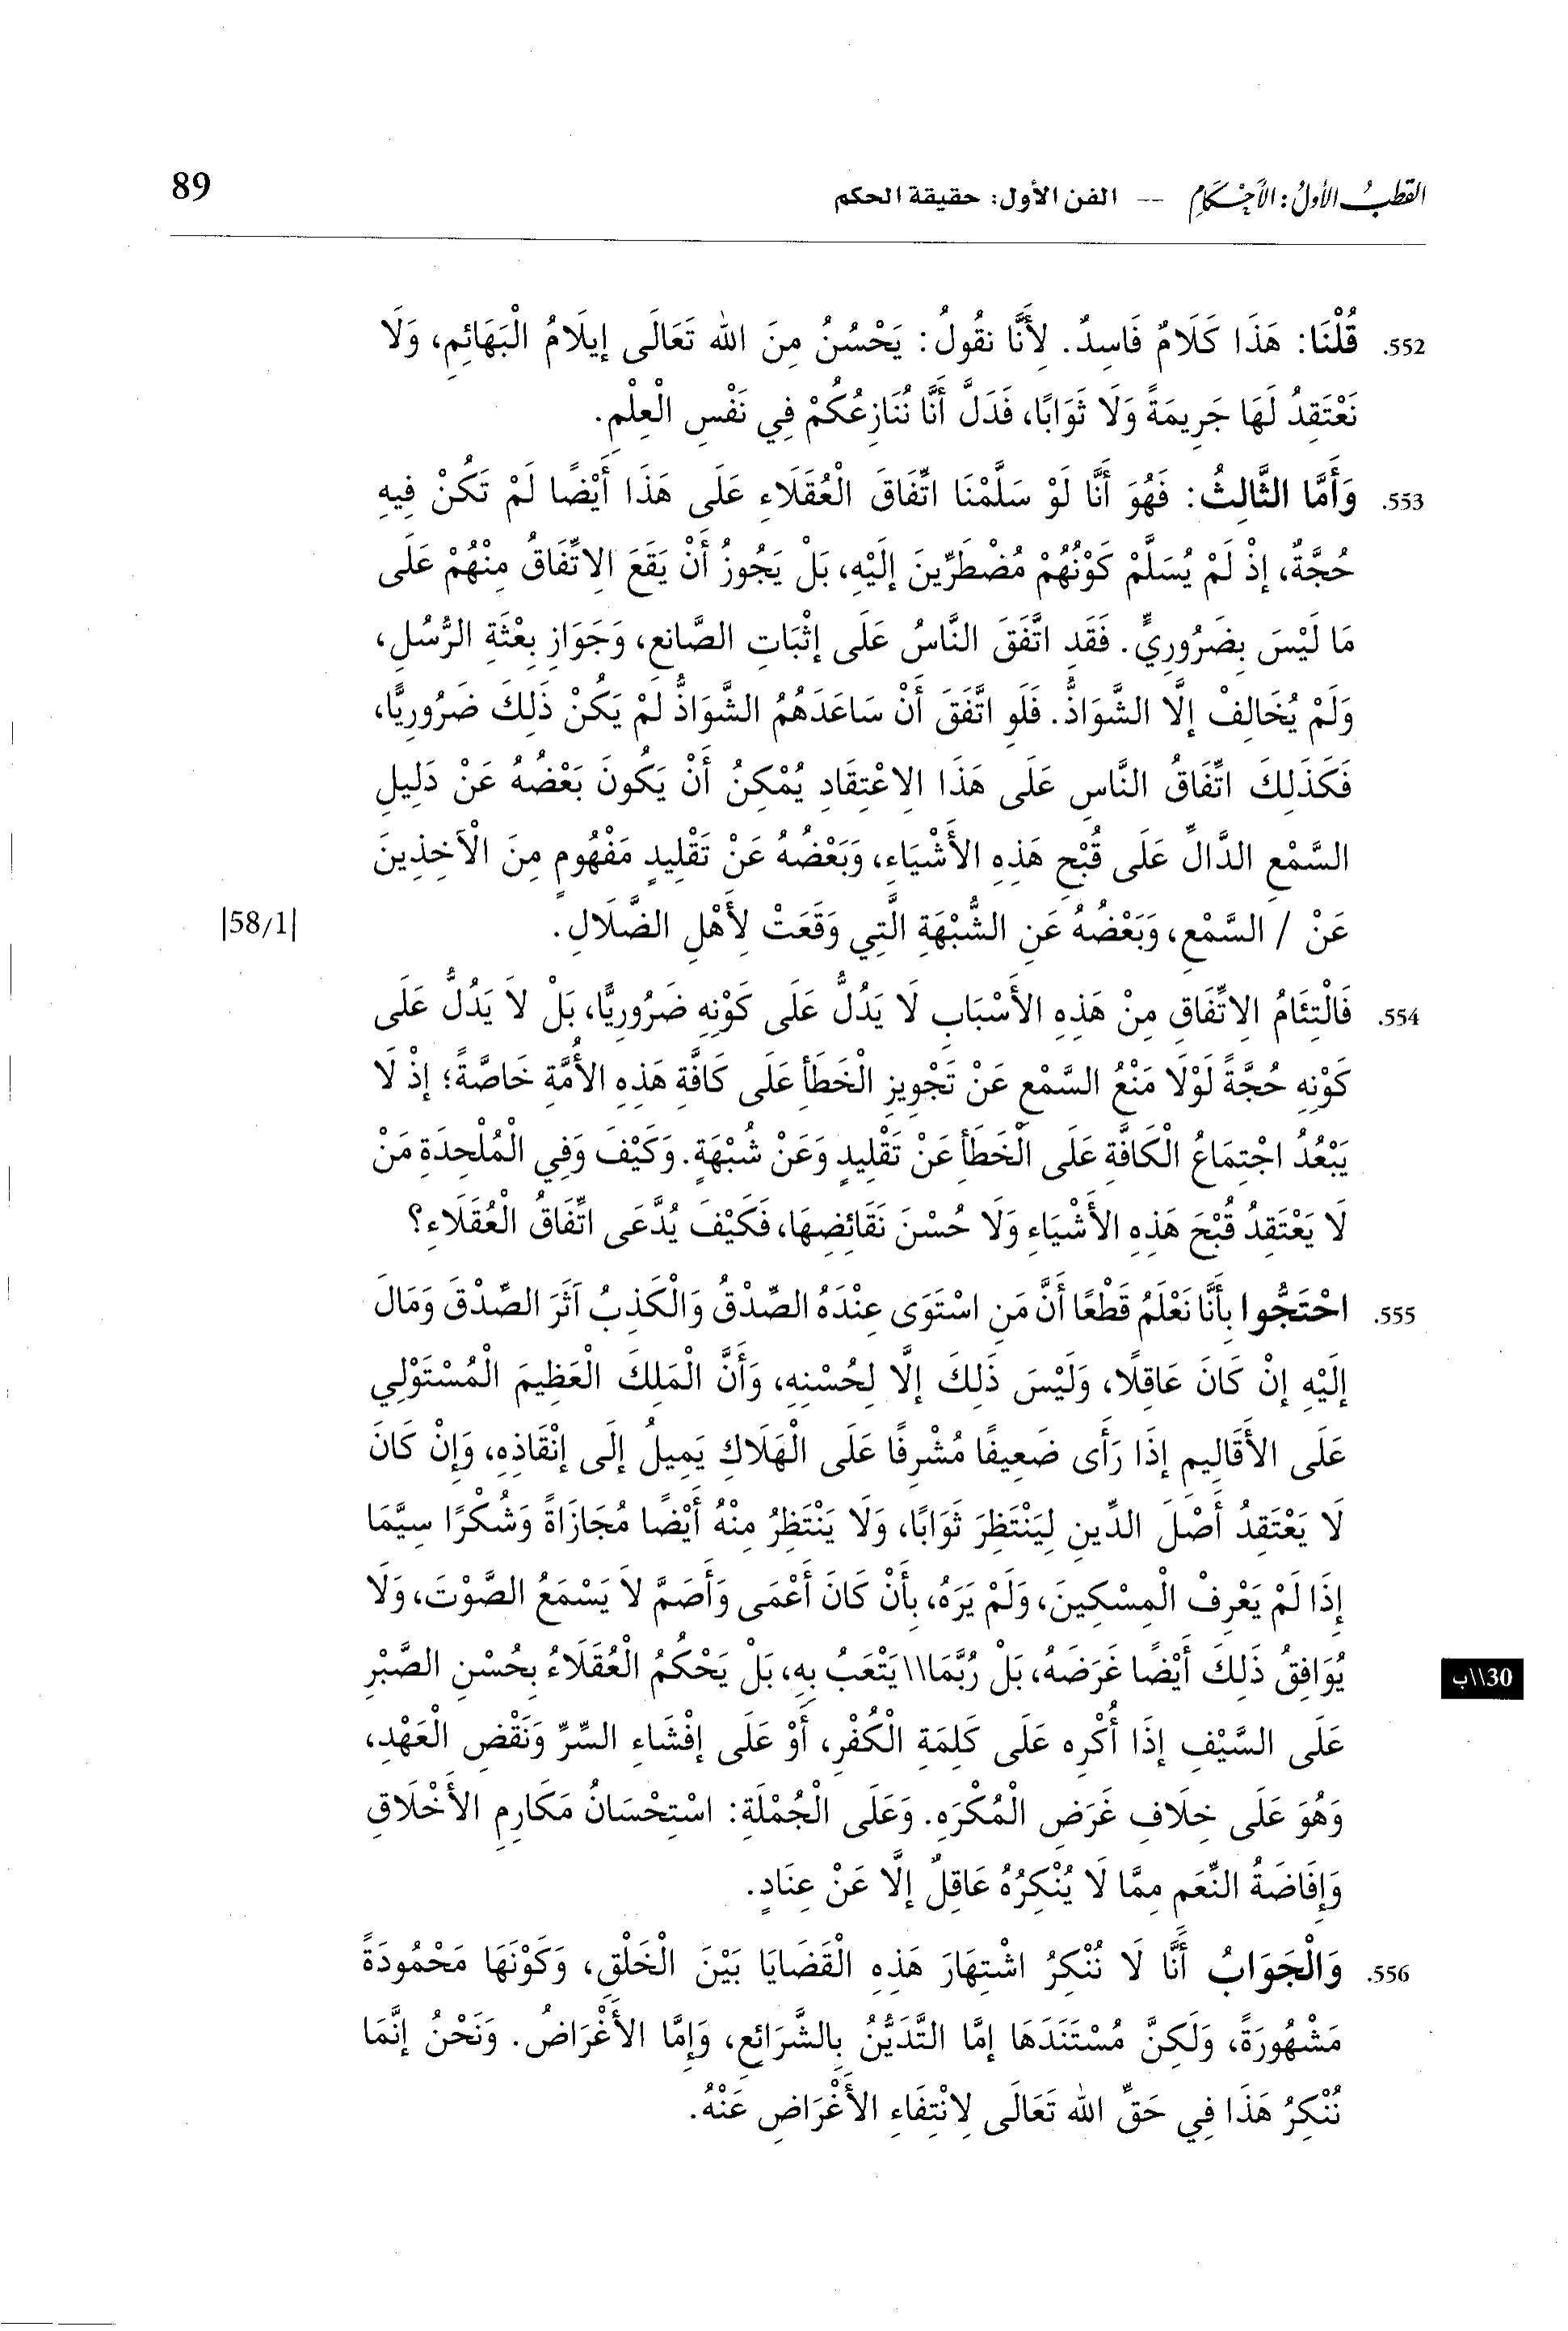 القطبُ الأولُ: الأحْكَامِ -- الفن الأول: حقيقة الحكم 89
552. قُلْنَا: هَذَا كَلَامٌ فَاسِدٌ. لِأَنَّا نقُولُ: يَحْسُنُ مِنَ الله تَعَالَى إيلَامُ الْبَهَائِمِ، وَلَا
نَعْتَقِدُ لَهَا جَرِيمَةً وَلَا ثَوَابًا، فَدَلَّ أَنَّا نُنَازِعُكُمْ فِي نَفْسِ الْعِلْمِ.
553. وَأَمَّا الثَّالِثُ: فَهُوَ أَنَّا لَوْ سَلَّمْنَا اتِّفَاقَ الْعُقَلَاءِ عَلَى هَذَا أَيْضًا لَمْ تَكُنْ فِيهِ
حُجَّةٌ، إذْ لَمْ يُسَلَّمْ كَوْنُهُمْ مُضْطَرِّينَ إلَيْهِ، بَلْ يَجُوزُ أَنْ يَقَعَ الِاتِّفَاقُ مِنْهُمْ عَلَى
مَا لَيْسَ بِضَرُورِيٍّ. فَقَدِ اتَّفَقَ النَّاسُ عَلَى إثْبَاتِ الصَّانعِ، وَجَوَازِ بِعْثَةِ الرُّسُلِ،
وَلَمْ يُخَالِفْ إلَّا الشَّوَاذُّ. فَلَوِ اتَّفَقَ أَنْ سَاعَدَهُمُ الشَّوَاذُّ لَمْ يَكُنْ ذَلِكَ ضَرُورِيًّا،
فَكَذَلِكَ اتِّفَاقُ النَّاسِ عَلَى هَذَا الِاعْتِقَادِ يُمْكِنُ أَنْ يَكُونَ بَعْضُهُ عَنْ دَلِيلِ
السَّمْعِ الدَّالِّ عَلَى قُبْحِ هَذِهِ الأَشْيَاءِ، وَبَعْضُهُ عَنْ تَقْلِيدٍ مَفْهُومٍ مِنَ الْآخِذِينَ
عَنْ / السَّمْعِ، وَبَعْضُهُ عَنِ الشُّبْهَةِ الَّتِي وَقَعَتْ لِأَهْلِ الضَّلَالِ. |58/1|
554. فَالْتِئَامُ الِاتِّفَاقِ مِنْ هَذِهِ الأَسْبَابِ لَا يَدُلُّ عَلَى كَوْنِهِ ضَرُورِيًّا، بَلْ لَا يَدُلُّ عَلَى
كَوْنِهِ حُجَّةً لَوْلَا مَنْعُ السَّمْعِ عَنْ تَجْوِيزِ الْخَطَأِ عَلَى كَافَّةِ هَذِهِ الأُمَّةِ خَاصَّةً؛ إذْ لَا
يَبْعُدُ اجْتِمَاعُ الْكَافَّةِ عَلَى الْخَطَأِ عَنْ تَقْلِيدٍ وَعَنْ شُبْهَةٍ. وَكَيْفَ وَفِي الْمُلْحِدَةِ مَنْ
لَا يَعْتَقِدُ قُبْحَ هَذِهِ الأَشْيَاءِ وَلَا حُسْنَ نَقَائِضِهَا، فَكَيْفَ يُدَّعَى اتِّفَاقُ الْعُقَلَاءِ؟
555. احْتَجُّوا بِأَنَّا نَعْلَمُ قَطْعًا أَنَّ مَنِ اسْتَوَى عِنْدَهُ الصِّدْقُ وَالْكَذِبُ آثَرَ الصِّدْقَ وَمَالَ
إلَيْهِ إنْ كَانَ عَاقِلًا، وَلَيْسَ ذَلِكَ إلَّا لِحُسْنِهِ، وَأَنَّ الْمَلِكَ الْعَظِيمَ الْمُسْتَوْلِي
عَلَى الأَقَالِيمِ إذَا رَأَى ضَعِيفًا مُشْرِفًا عَلَى الْهَلَاكِ يَمِيلُ إلَى إنْقَاذِهِ، وَإنْ كَانَ
لَا يَعْتَقِدُ أَصْلَ الدِّينِ لِيَنْتَظِرَ ثَوَابًا، وَلَا يَنْتَظِرُ مِنْهُ أَيْضًا مُجَازَاةً وَشُكْرًا سِيَّمَا
إذَا لَمْ يَعْرِفْ الْمِسْكِينَ، وَلَمْ يَرَهُ، بِأَنْ كَانَ أَعْمَى وَأَصَمَّ لَا يَسْمَعُ الصَّوْتَ، وَلَا
يُوَافِقُ ذَلِكَ أَيْضًا غَرَضَهُ، بَلْ رُبَّمَا\\ يَتْعَبُ بِهِ، بَلْ يَحْكُمُ الْعُقَلَاءُ بِحُسْنِ الصَّبْرِ 30\\ب
عَلَى السَّيْفِ إذَا أُكْرِه عَلَى كَلِمَةِ الْكُفْرِ، أَوْ عَلَى إفْشَاءِ السِّرِّ وَنَقْضِ الْعَهْدِ،
وَهُوَ عَلَى خِلَافِ غَرَضِ الْمُكْرَهِ. وَعَلَى الْجُمْلَةِ: اسْتِحْسَانُ مَكَارِمِ الأَخْلَاقِ
وَإفَاضَةُ النِّعَمِ مِمَّا لَا يُنْكِرُهُ عَاقِلٌ إلَّا عَنْ عِنَادٍ.
556. وَالْجَوَابُ أَنَّا لَا نُنْكِرُ اشْتِهَارَ هَذِهِ الْقَضَايَا بَيْنَ الْخَلْقِ، وَكَوْنَهَا مَحْمُودَةً
مَشْهُورَةً، وَلَكِنَّ مُسْتَنَدَهَا إمَّا التَّدَيُّنُ بِالشَّرَائعِ، وَإمَّا الأَغْرَاضُ. وَنَحْنُ إنَّمَا
نُنْكِرُ هَذَا فِي حَقِّ الله تَعَالَى لِانْتِفَاءِ الأَغْرَاضِ عَنْهُ.